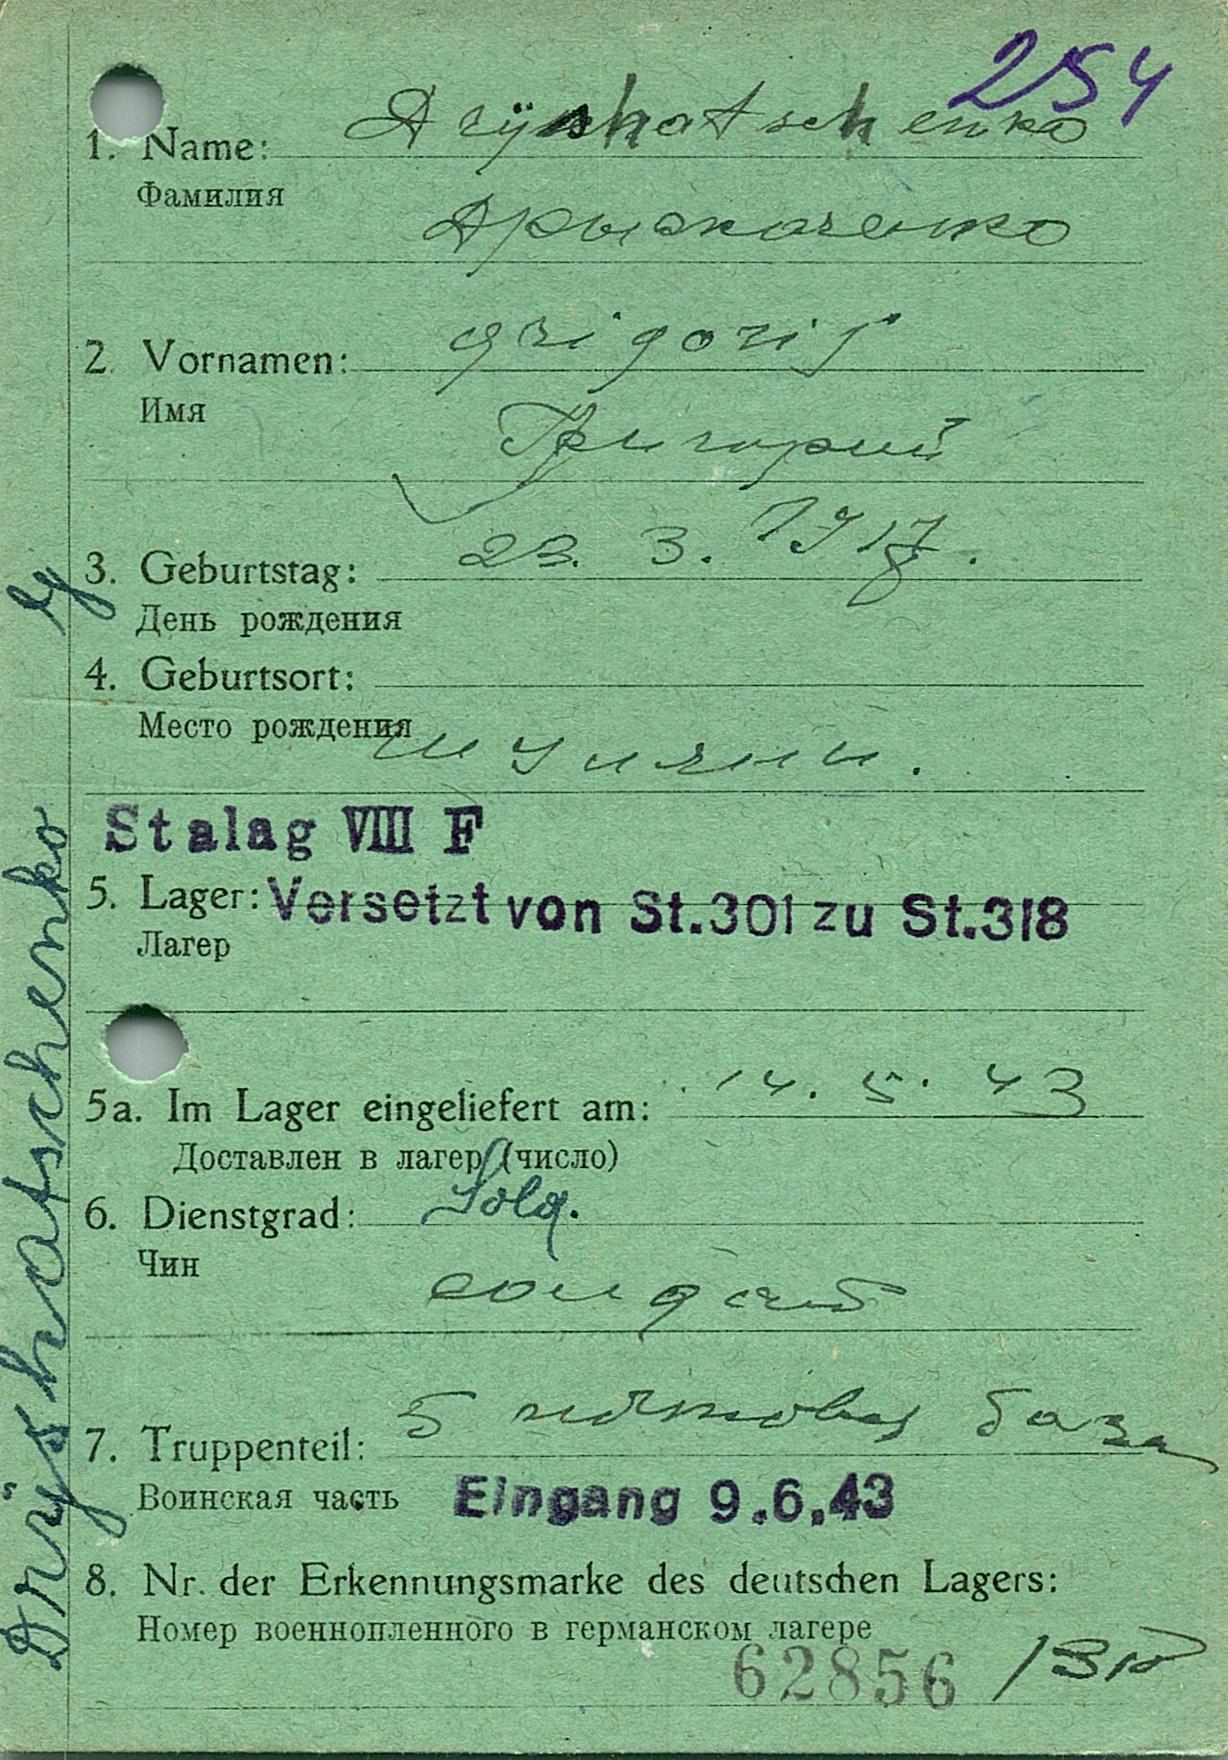 254
1. Name: Dryshatschenko
Фамилия
Дрыжаченко
2. Vornamen: grigorij
Имя
Григорий
3. Geburtstag: 23. 3. 1917.
День рождения
4. Geburtsort:
Место рождения
Stalag VIII F
5. Lager: Versetzt von St.301 zu St.318
Лагер
5a. Im Lager eingeliefert am: 14. 5. 43
Доставлен в лагер (число)
6. Dienstgrad: Sold.
Чин
солдат
7. Truppenteil: 5 база
Воинская часть
Eingang 9.6.43
8. Nr. der Erkennungsmarke des deutschen Lagers:
Номер военнопленного в германском лагере
62856 /318
Drÿshatschenko